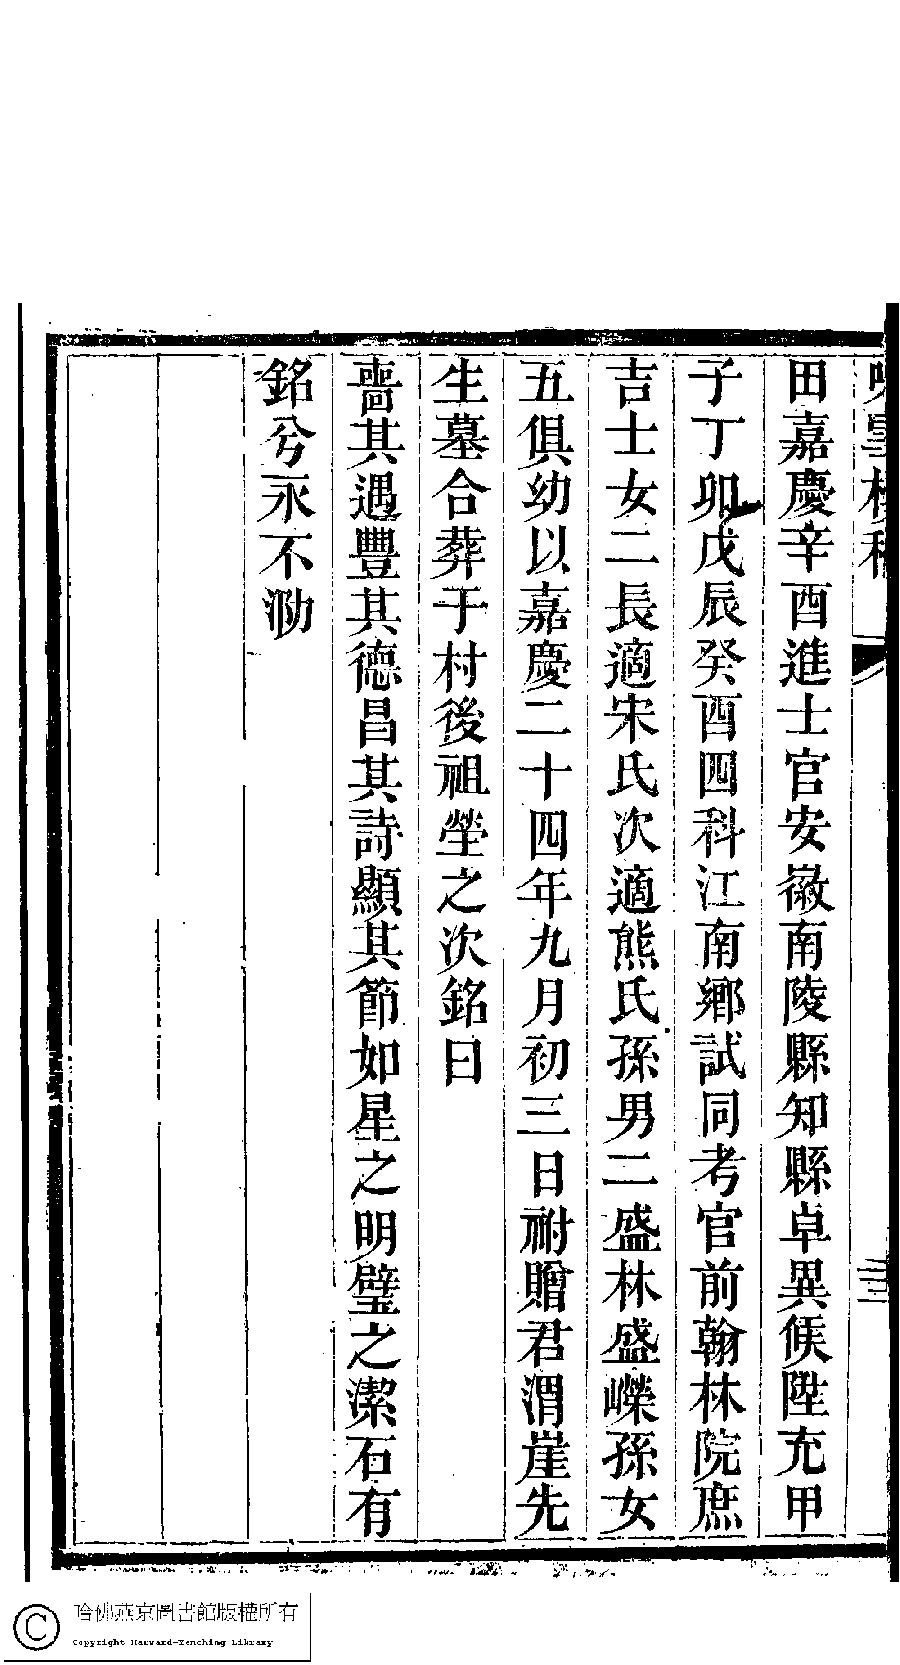 田嘉慶辛酉進士官安徽南陵縣知縣卓異候陞充甲
子丁卯戊辰癸酉四科江南鄉試同考官前翰林院庶
吉士女二長適宋氏次適熊氏孫男二盛林盛嶸孫女
五俱幼以嘉慶二十四年九月初三日祔贈君渭崖先
生墓合葬于村後祖塋之次銘曰
嗇其遇豐其德昌其詩顯其節如星之明璧之潔石有
銘兮永不泐
哈佛燕京圖書館版權所有
Copyright Harvard-Yenching Library